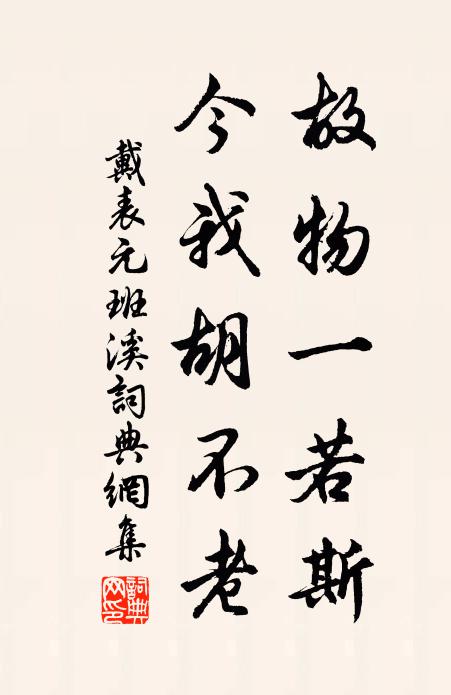 故物一若斯
今我胡不老
戴表元班溪詞典網集
詞典网印